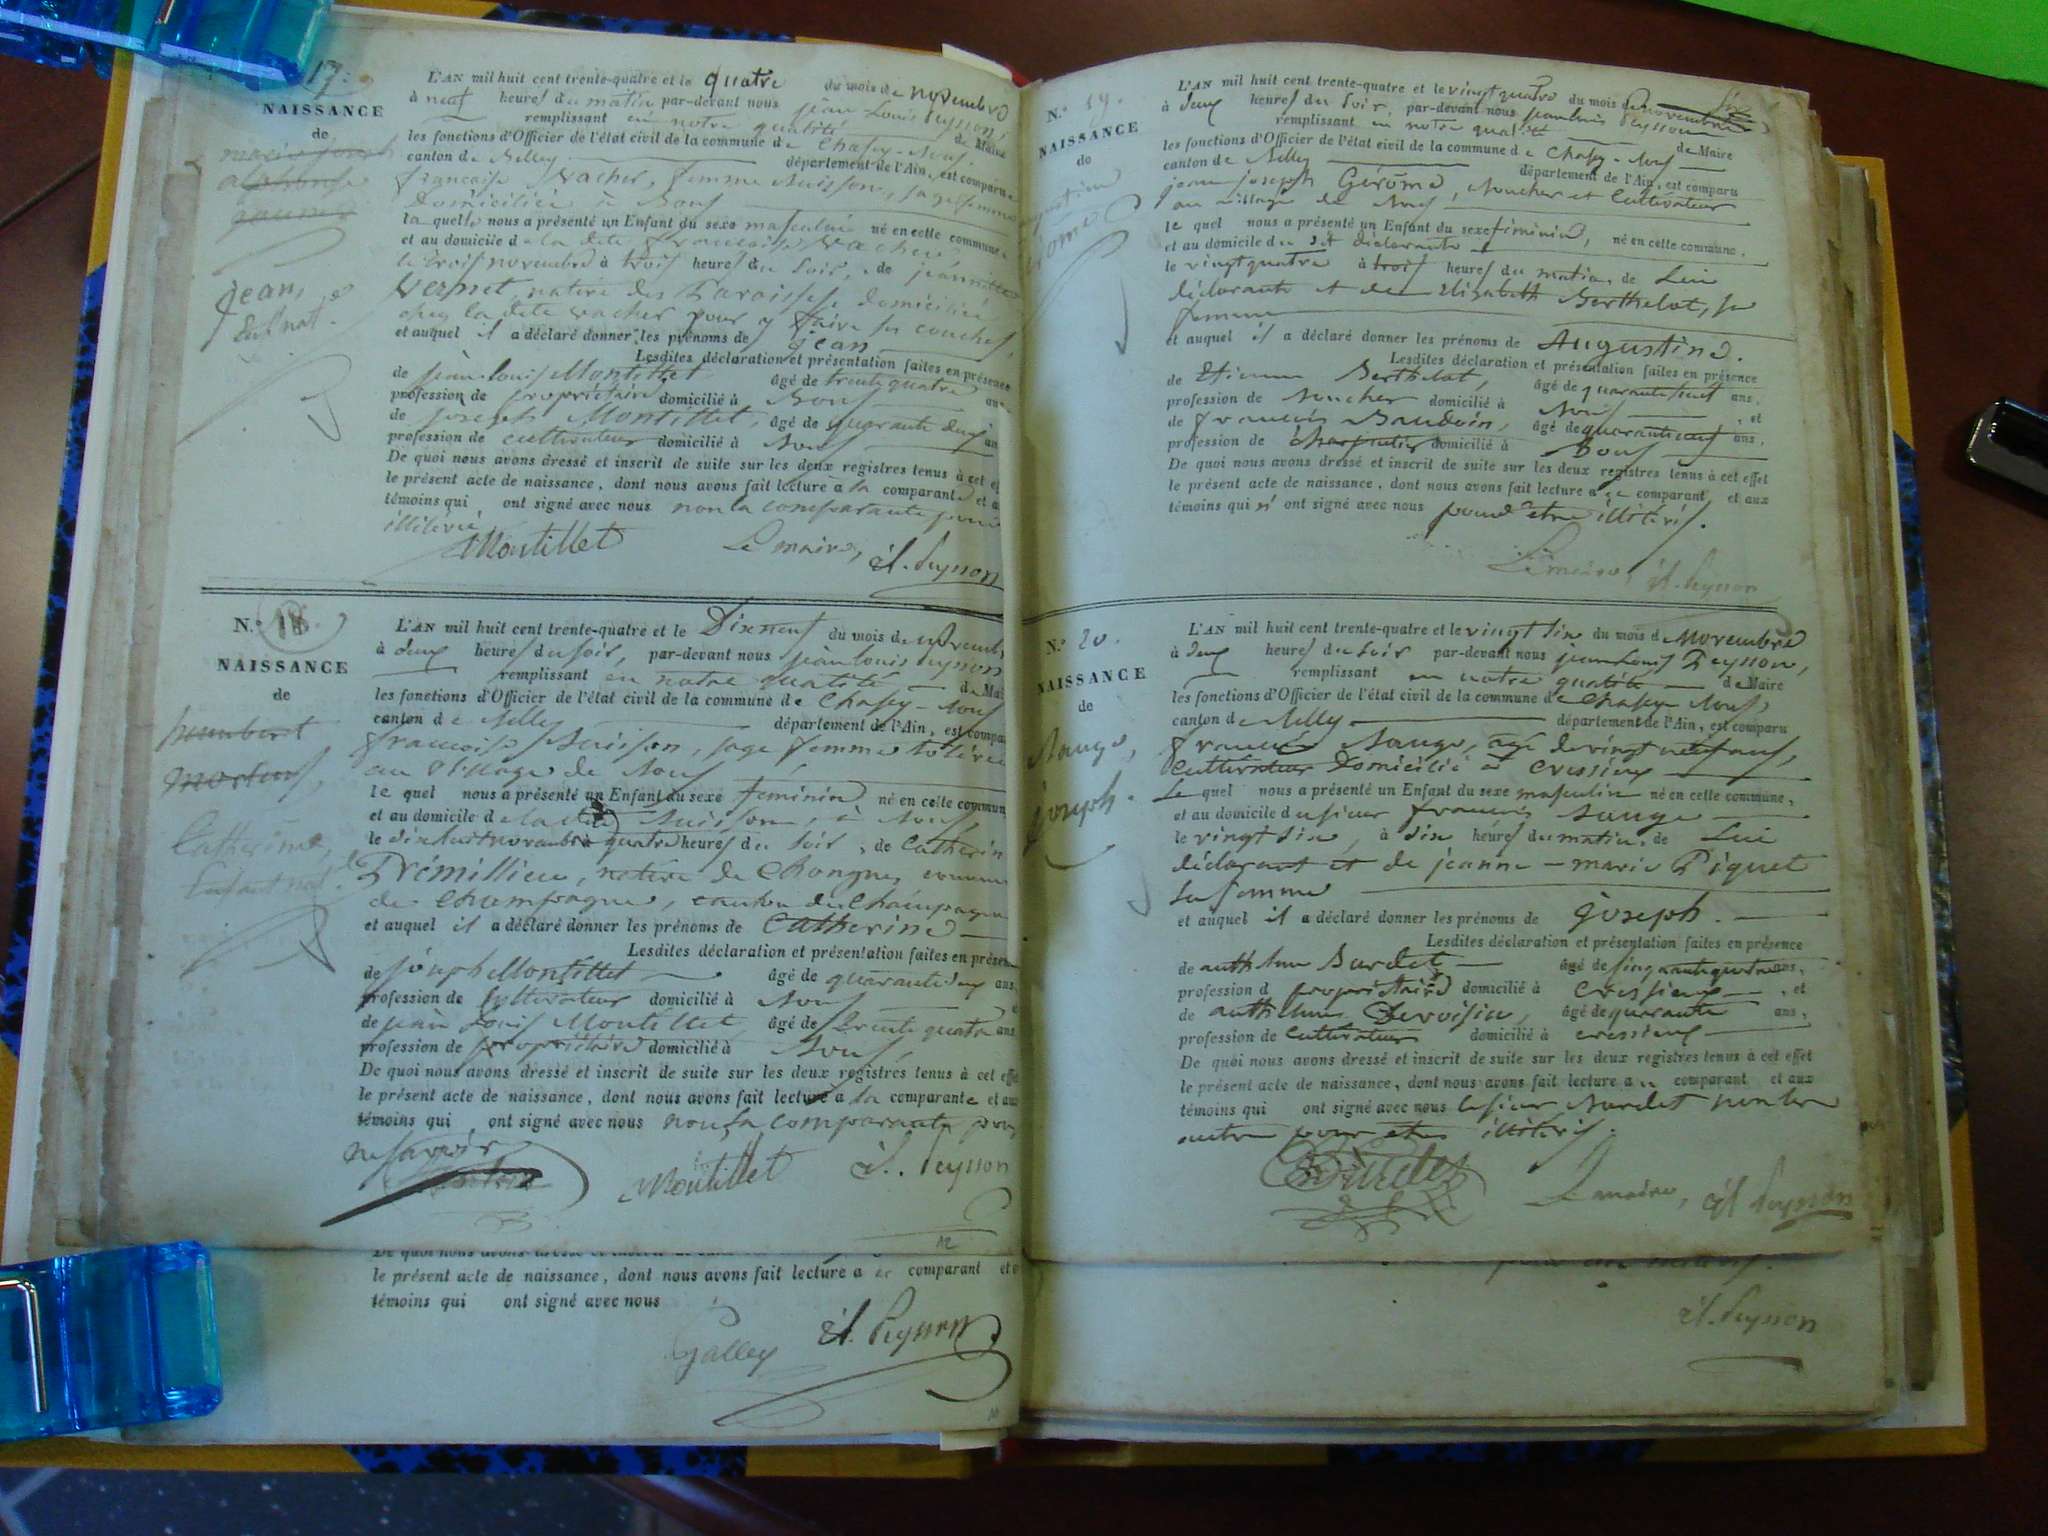 17.
NAISSANCE
de
Jean,
Enft nat.
L'AN mil huit cent trente-quatre et le quatre du mois de novembre
à neuf heures du matin par-devant nous jean-Louis Peysson,
remplissant en notre qualité de Maire
les fonctions d'Officier de l'état civil de la commune de Chasey-Bons
canton de Belley département de l'Ain, est comparu
françoise Vacher, femme Buisson, sage femme
domiciliée à Bons
laquelle nous a présenté un Enfant du sexe masculin né en cette commune,
et au domicile de la dite françoise Vacher,
le trois novembre à trois heures du soir, de jeannette
Vernet native des Paroisses domiciliée
chez la dite vacher pour y faire ses couches,
et auquel il a déclaré donner les prénoms de jean
Lesdites déclaration et présentation faites en présence
de jean louis Montillet âgé de trente quatre ans
profession de propriétaire domicilié à Bons
de joseph Montillet, âgé de quarante deux an
profession de cultivateur domicilié à Bons
De quoi nous avons dressé et inscrit de suite sur les deux registres tenus à cet ef
le présent acte de naissance, dont nous avons fait lecture à la comparante et a
témoins qui ont signé avec nous non la comparante pour
illitérée
Montillet Le maire, jl. Peysson
N.o 18.
NAISSANCE
de
humbert
Catherine,
Enfant nat.
L'AN mil huit cent trente-quatre et le Dix neuf du mois de novemb
à deux heures du soir, par-devant nous jean louis peysson
remplissant en notre qualité de Mai
les fonctions d'Officier de l'état civil de la commune de Chasey-Bons
canton de Belley département de l'Ain, est compar
françoise Buisson, sage femme tolérée
au Village de Bons
le quel nous a présenté un Enfant du sexe féminin né en cette commun
et au domicile de la dite Buisson, à Bons
le dix huit novembre à quatre heures du soir, de Catherin
Prémillieu, native de Chongnes, commune
de Champagne, canton de Champagne
et auquel il a déclaré donner les prénoms de Catherine
Lesdites déclaration et présentation faites en présen
de joseph Montillet âgé de quarante deux ans,
profession de Cultivateur domicilié à Bons
de jean Louis Montillet, âgé de trente quatre ans
profession de propriétaire domicilié à Bons,
De quoi nous avons dressé et inscrit de suite sur les deux registres tenus à cet effet
le présent acte de naissance, dont nous avons fait lecture à la comparante et aux
témoins qui ont signé avec nous non la comparante pour
ne savoir
Montillet jl. Peysson
le présent acte de naissance, dont nous avons fait lecture à comparant et
témoins qui ont signé avec nous
Galley jl. Peysson
N.o 19.
NAISSANCE
de
L'AN mil huit cent trente-quatre et le vingt quatre du mois de novembre
à deux heures du soir, par-devant nous jean louis Peysson
remplissant en notre qualité de Maire
les fonctions d'Officier de l'état civil de la commune de Chasey-Bons
canton de Belley département de l'Ain, est comparu
jean joseph Gérôme, Boucher et Cultivateur
au village de Bons,
le quel nous a présenté un Enfant du sexe féminin, né en cette commune,
et au domicile du dit déclarante
le vingt quatre à trois heures du matin, de Lui
déclarante et de Elizabeth Berthelot, sa
femme
et auquel il a déclaré donner les prénoms de Augustine.
Lesdites déclaration et présentation faites en présence
de Etienne Berthelot, âgé de ans,
profession de Boucher domicilié à Bons, et
de françois Baudoin, âgé de ans,
profession de charpentier domicilié à Bons
De quoi nous avons dressé et inscrit de suite sur les deux registres tenus à cet effet
le présent acte de naissance, dont nous avons fait lecture à ce comparant et aux
témoins qui n' ont signé avec nous pour etre illitérés.
Le maire, jl. Peysson
N.o 20.
NAISSANCE
de
Sauge,
joseph.
L'AN mil huit cent trente-quatre et le vingt six du mois de Novembre
à deux heures du soir par-devant nous jean Louis Peysson,
remplissant en notre qualité de Maire
les fonctions d'Officier de l'état civil de la commune de Chasey Bons
canton de Belley département de l'Ain, est comparu
françois Sauge, agé de vingt neuf ans,
Cultivateur Domicilié à Cressieux
Le quel nous a présenté un Enfant du sexe masculin né en cette commune,
et au domicile du sieur françois Sauge
le vingt six, à six heures du matin, de Lui
déclarant et de jeanne-marie Piquet
sa femme
et auquel il a déclaré donner les prénoms de joseph.
Lesdites déclaration et présentation faites en présence
de anthelme Burdet âgé de sinquante quatre ans,
profession de propriétaire domicilié à Cressieux, et
de anthelme Dervoisin, âgé de quarante ans,
profession de Cultivateur domicilié à cressieux
De quoi nous avons dressé et inscrit de suite sur les deux registres tenus à cet effet
le présent acte de naissance, dont nous avons fait lecture à comparant et aux
témoins qui ont signé avec nous le sieur Burdet non les
autre pour etre illitérés.
Burdet Le maire, jl Peysson
jl. Peysson